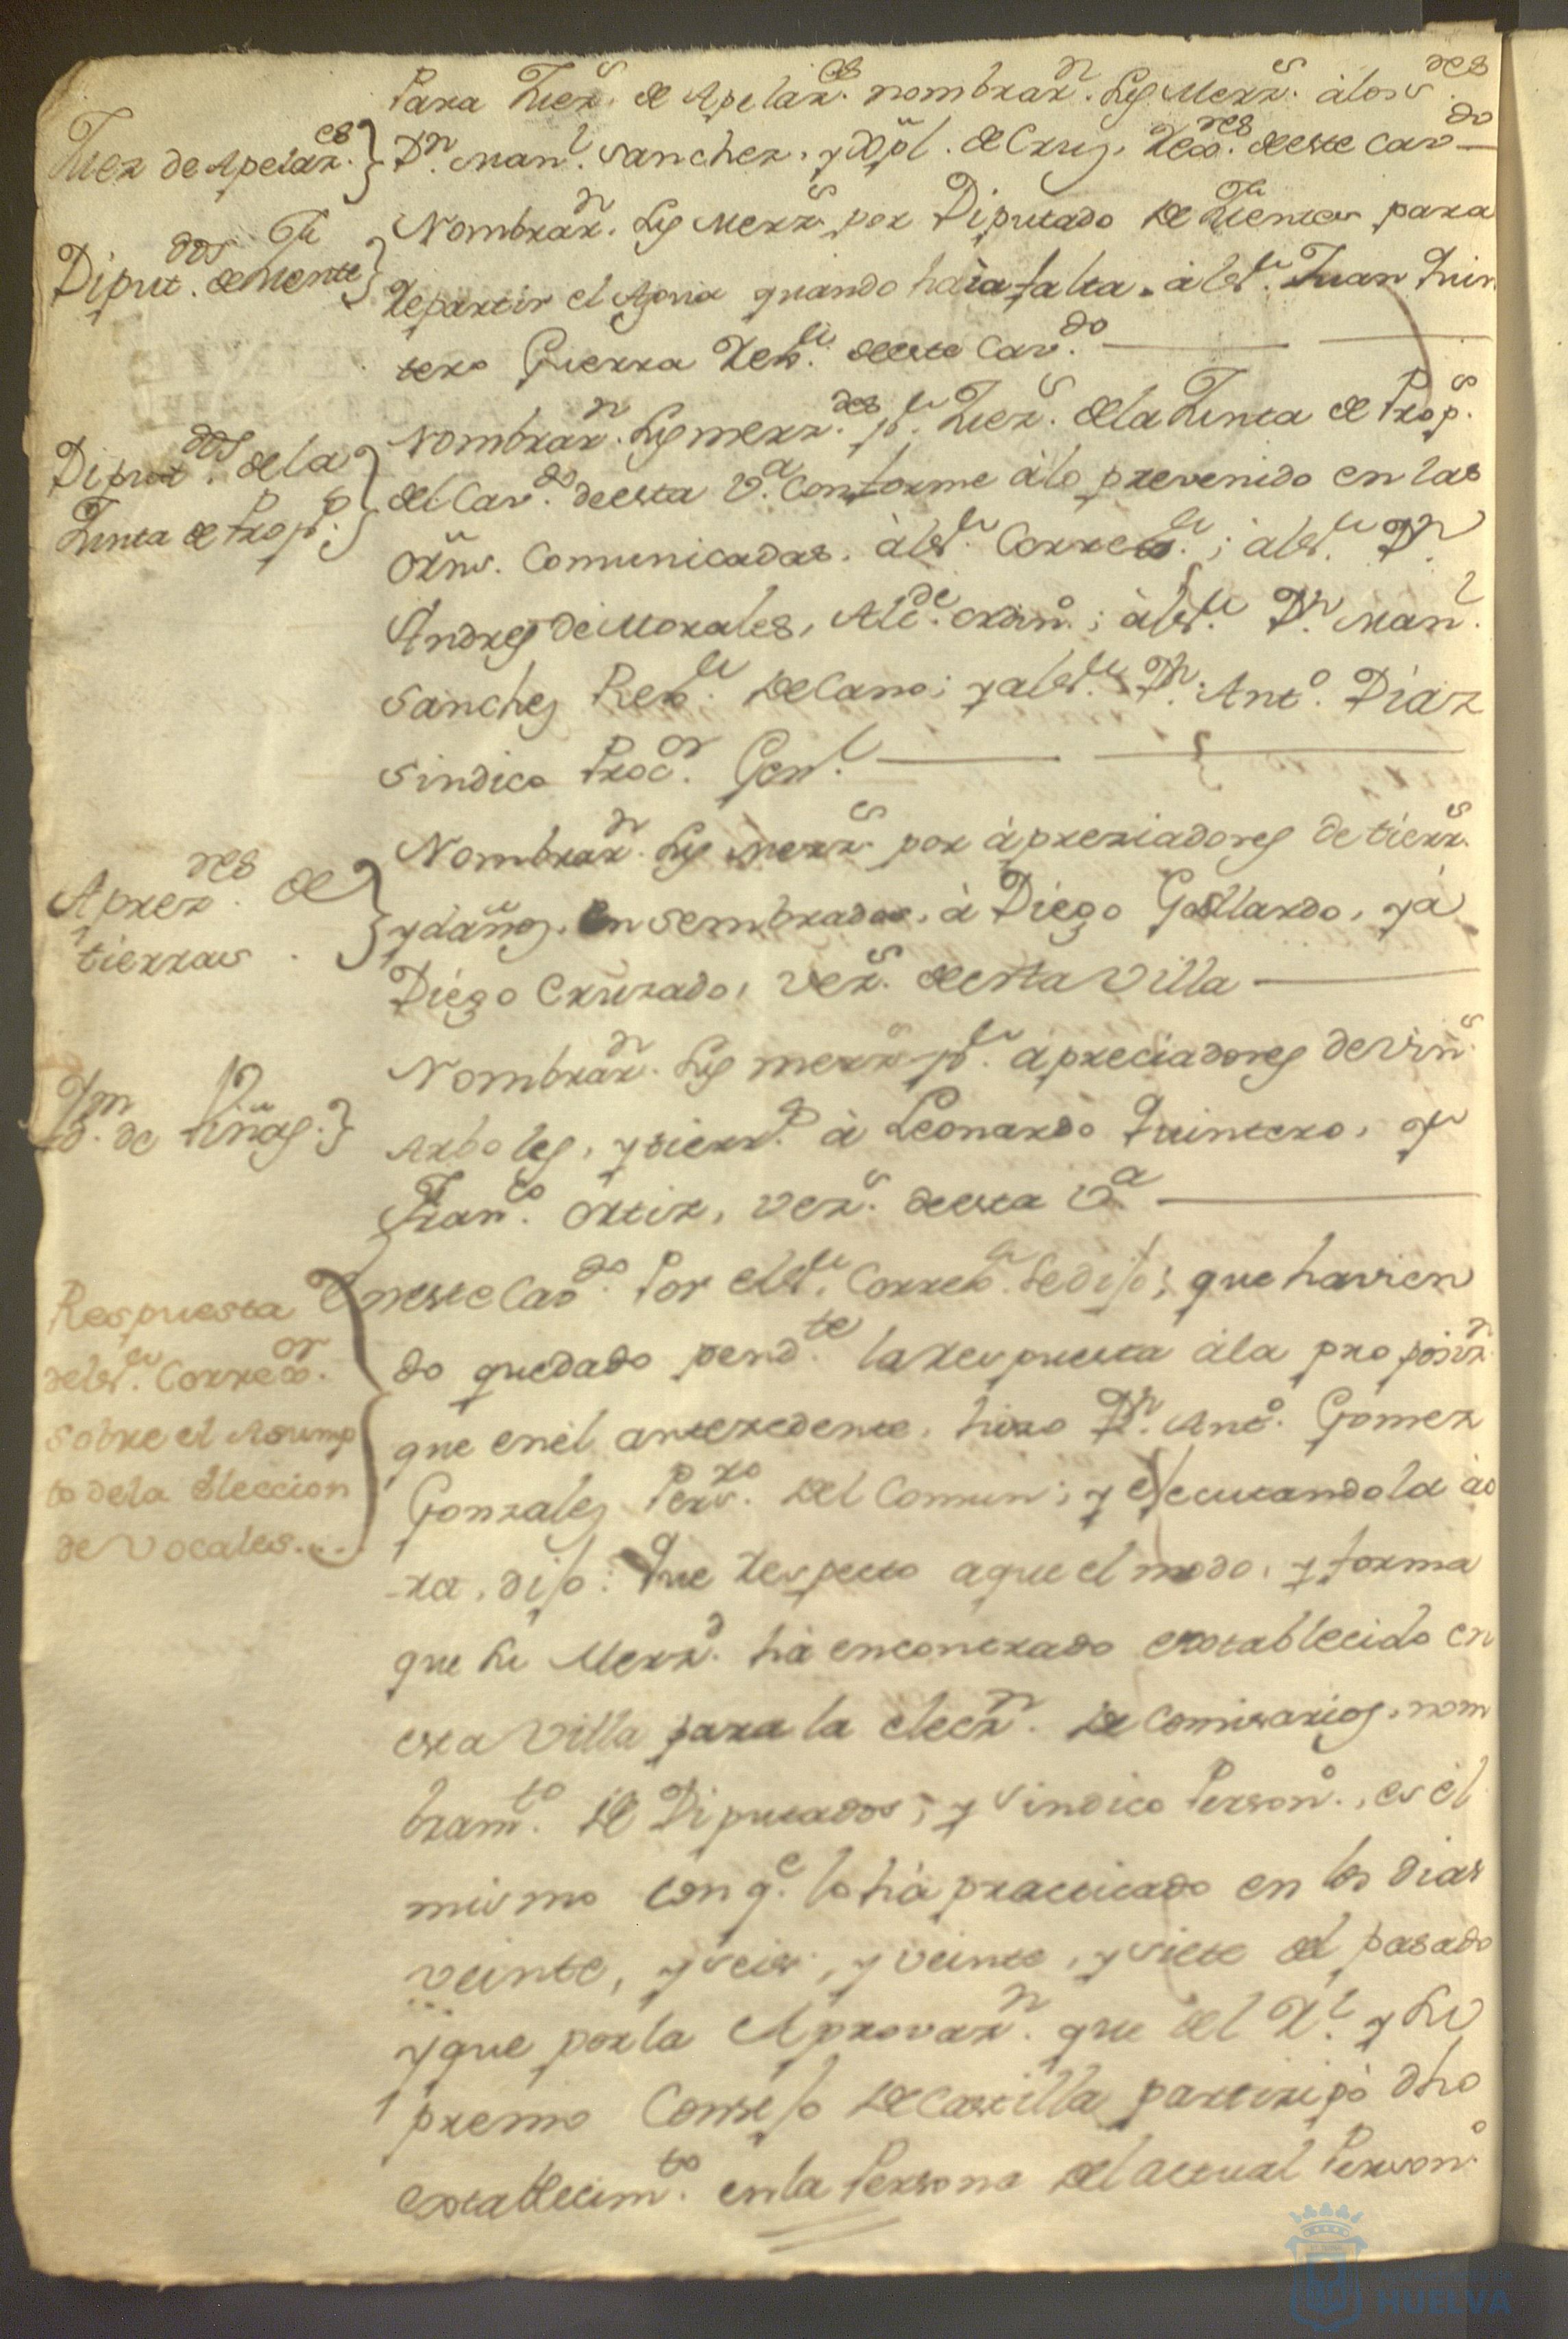 Para Juez.s de Apelaz.es nombrar.n Sus Merz.s â los s.res
Juez de Apelaz.es
D.n Man.l Sanchez, y de Cruz, Rex.res de este Cav.do
Nombrar.n Sus Merz.s por Diputado de Fuentes para
Diput.dos de fuente
Repartir el Agua quando haia falta, â el S.r Juan Quin
tero Guerra Rex.r de este Cav.do
Nombrar.n Sus merz.des p.r Juez.s de la Junta de Prop.s
Diput.dos de la
Junta de Prop.s
del Cav.do de esta V.a conforme â lo prevenido en las
Orñs. Comunicadas. â el S.r Correx.r; â el S.r D.n
Andres de Morales, Alc.de ordin.o; â el S.r D.n Man.l
Sanchez Rex.r Decano; y â el S.r D.n Ant.o Diaz
Sindico Proc.or Gen.l
Nombrar.n Sus Merz.s por âpreziadores de tierr.s
Aprez.res de
tierras
y daños, en sembrados, â Diego Gallardo, y â
Diego Cruzado, vez.s de esta Villa
Nombrar.n Sus merz.s p.r âpreciadores de viñ.s
Ym
d. de Viñas.
Arboles, y sierr.s â Leonardo Quintero, y
Fran.co Ortiz, vez.s de esta V.a
En este Cav.do Por el S.r Correx.r Se dijo; que havien
Respuesta
del S.r Correx.or
sobre el Asump
to de la Eleccion
de Vocales...
do quedado pend.te la respuesta â la proposiz.n
que en el antezedente, hizo D.n Ant.o Gomez
Gonzales Pers.ro del Comun; y ejecutandola âo
ra, dijo: Que Respecto a que el modo, y forma
que Su Merz.d hâ encontrado establecido en
esta Villa para la elecz.n de Comisarios, nom
bram.to de Diputados, y Sindico Person.o, es el
mismo con q.e lo hâ practicado en los dias
veinte, y seis, y veinte, y siete del pasado
y que por la Aprovaz.n que del R.l y Su
premo Consejo de Castilla partizipó dho
establecim.to en la Persona del actual Person.o
HUELVA